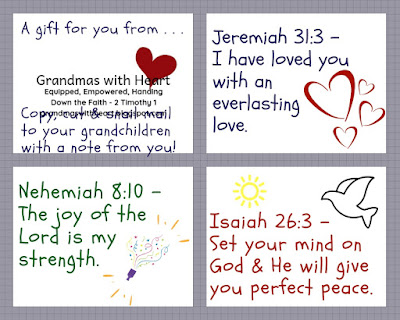 A gift for you from . . .
Grandmas with Heart
Equipped, Empowered, Handing
Down the Faith - 2 Timothy 1
Copy, cut & snail mail
to your grandchildren
with a note from you!
Jeremiah 31:3 -
I have loved you
with an
everlasting
love.
Nehemiah 8:10 -
The joy of the
Lord is my
strength.
Isaiah 26:3 -
Set your mind on
God & He will give
you perfect peace.